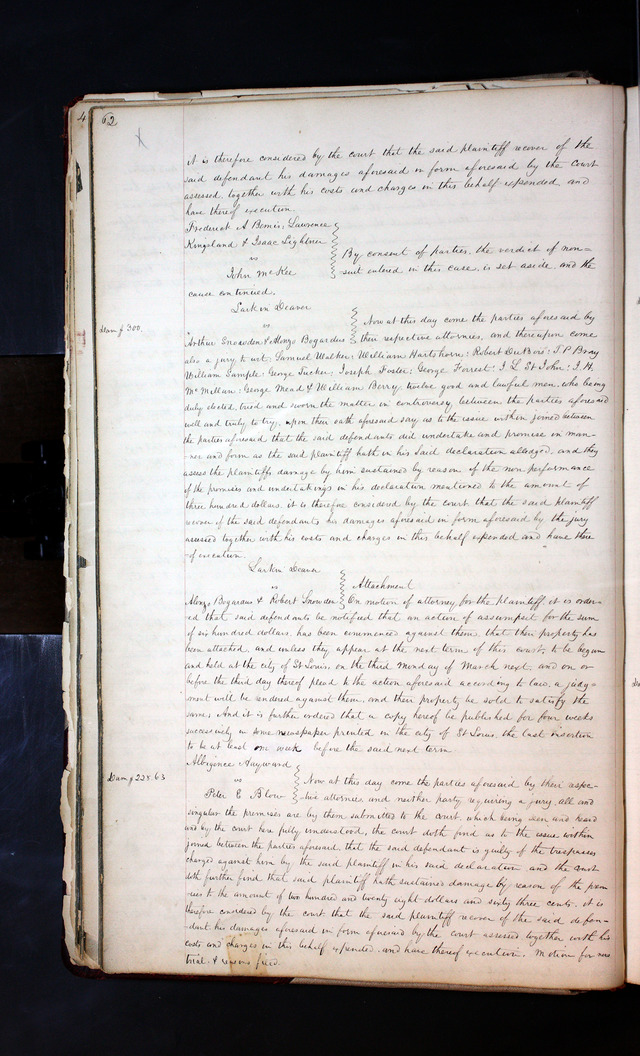 62
It is therefore considered by the court that the said plaintiff recover of the
said defendant his damages aforesaid in form aforesaid by the court
assessed together with his costs and charges in this behalf expended and
have thereof execution.
Frederick A Bemis, Lawrence
Kingsland & Isaac Lightner
vs
John McKee
By consent of parties, the verdict of non=
suit entered in this case, is set aside and the
cause continued.
Larkin Deaver
vs
Arthur Snowden & Alonzo Bogardus
Dam $300.
Now at this day come the parties aforesaid by
their respective attornies, and thereupon come
also a jury to wit: Samuel Walker: William Hartshorn: Robert : T. P Bray
William Sample: George Tucker: Joseph Foster: George Forrest: J L St John: J. H.
McMillan: George Mead & William Berry, twelve good and lawful men, who being
duly elected, tried and sworn the matter in controversy between the parties aforesaid
well and truly to try, upon their oath aforesaid say as to the issue within joined between
the parties aforesaid that the said defendants did undertake and promise in man=
=ner and form as the said plaintiff hath in his said declaration alledged, and they
assess the plaintiffs damage by him sustained by reason of the non performance
of the promises and undertakings in his declaration mentioned to the amount of
three hundred dollars. it is therefore considered by the court that the said plaintiff
recover of the said defendants his damages aforesaid in form aforesaid by the jury
assessed together with his costs and charges in this behalf expended and have there
of execution.
Larkin Deaver
vs
Alonzo Bogardus & Robert Snowden
Attachment
On motion of attorney for the plaintiff, it is order=
ed that said defendants be notified that an action of assumpsit for the sum
of six hundred dollars, has been commenced against them, that their property has
been attached, and unless they appear at the next term of this court, to be begun
and held at the city of St Louis, on the third monday of March next, and on or
before the third day thereof plead to the action aforesaid according to law, a judg=
ment will be rendered against them, and their property be sold to satisfy the
same; And it is further ordered that a copy hereof be published for four weeks
successively in some newspaper printed in the city of St Louis, the last insertion
to be at least one week before the said next term.
Albigence Hayward
vs
Peter E Blow
Dam $228.63
Now at this day come the parties aforesaid by their respec=
=tive attornies, and neither party requiring a jury, all and
singular the premises are by them submitted to the court, which being seen and heard
and by the court here fully understood, the court doth find as to the issue within
joined between the parties aforesaid, that the said defendant is guilty of the trespasses
charged against him by the said plaintiff in his said declaration and the court
doth further find that said plaintiff hath sustained damage by reason of the prem
ises to the amount of two hundred and twenty eight dollars and sixty three cents. it is
therefore considered by the court that the said plaintiff recover of the said defen=
=dant his damages aforesaid in form aforesaid by the court assessed together with his
costs and charges in this behalf expended, and have thereof execution. Motion for new
trial & reasons filed.